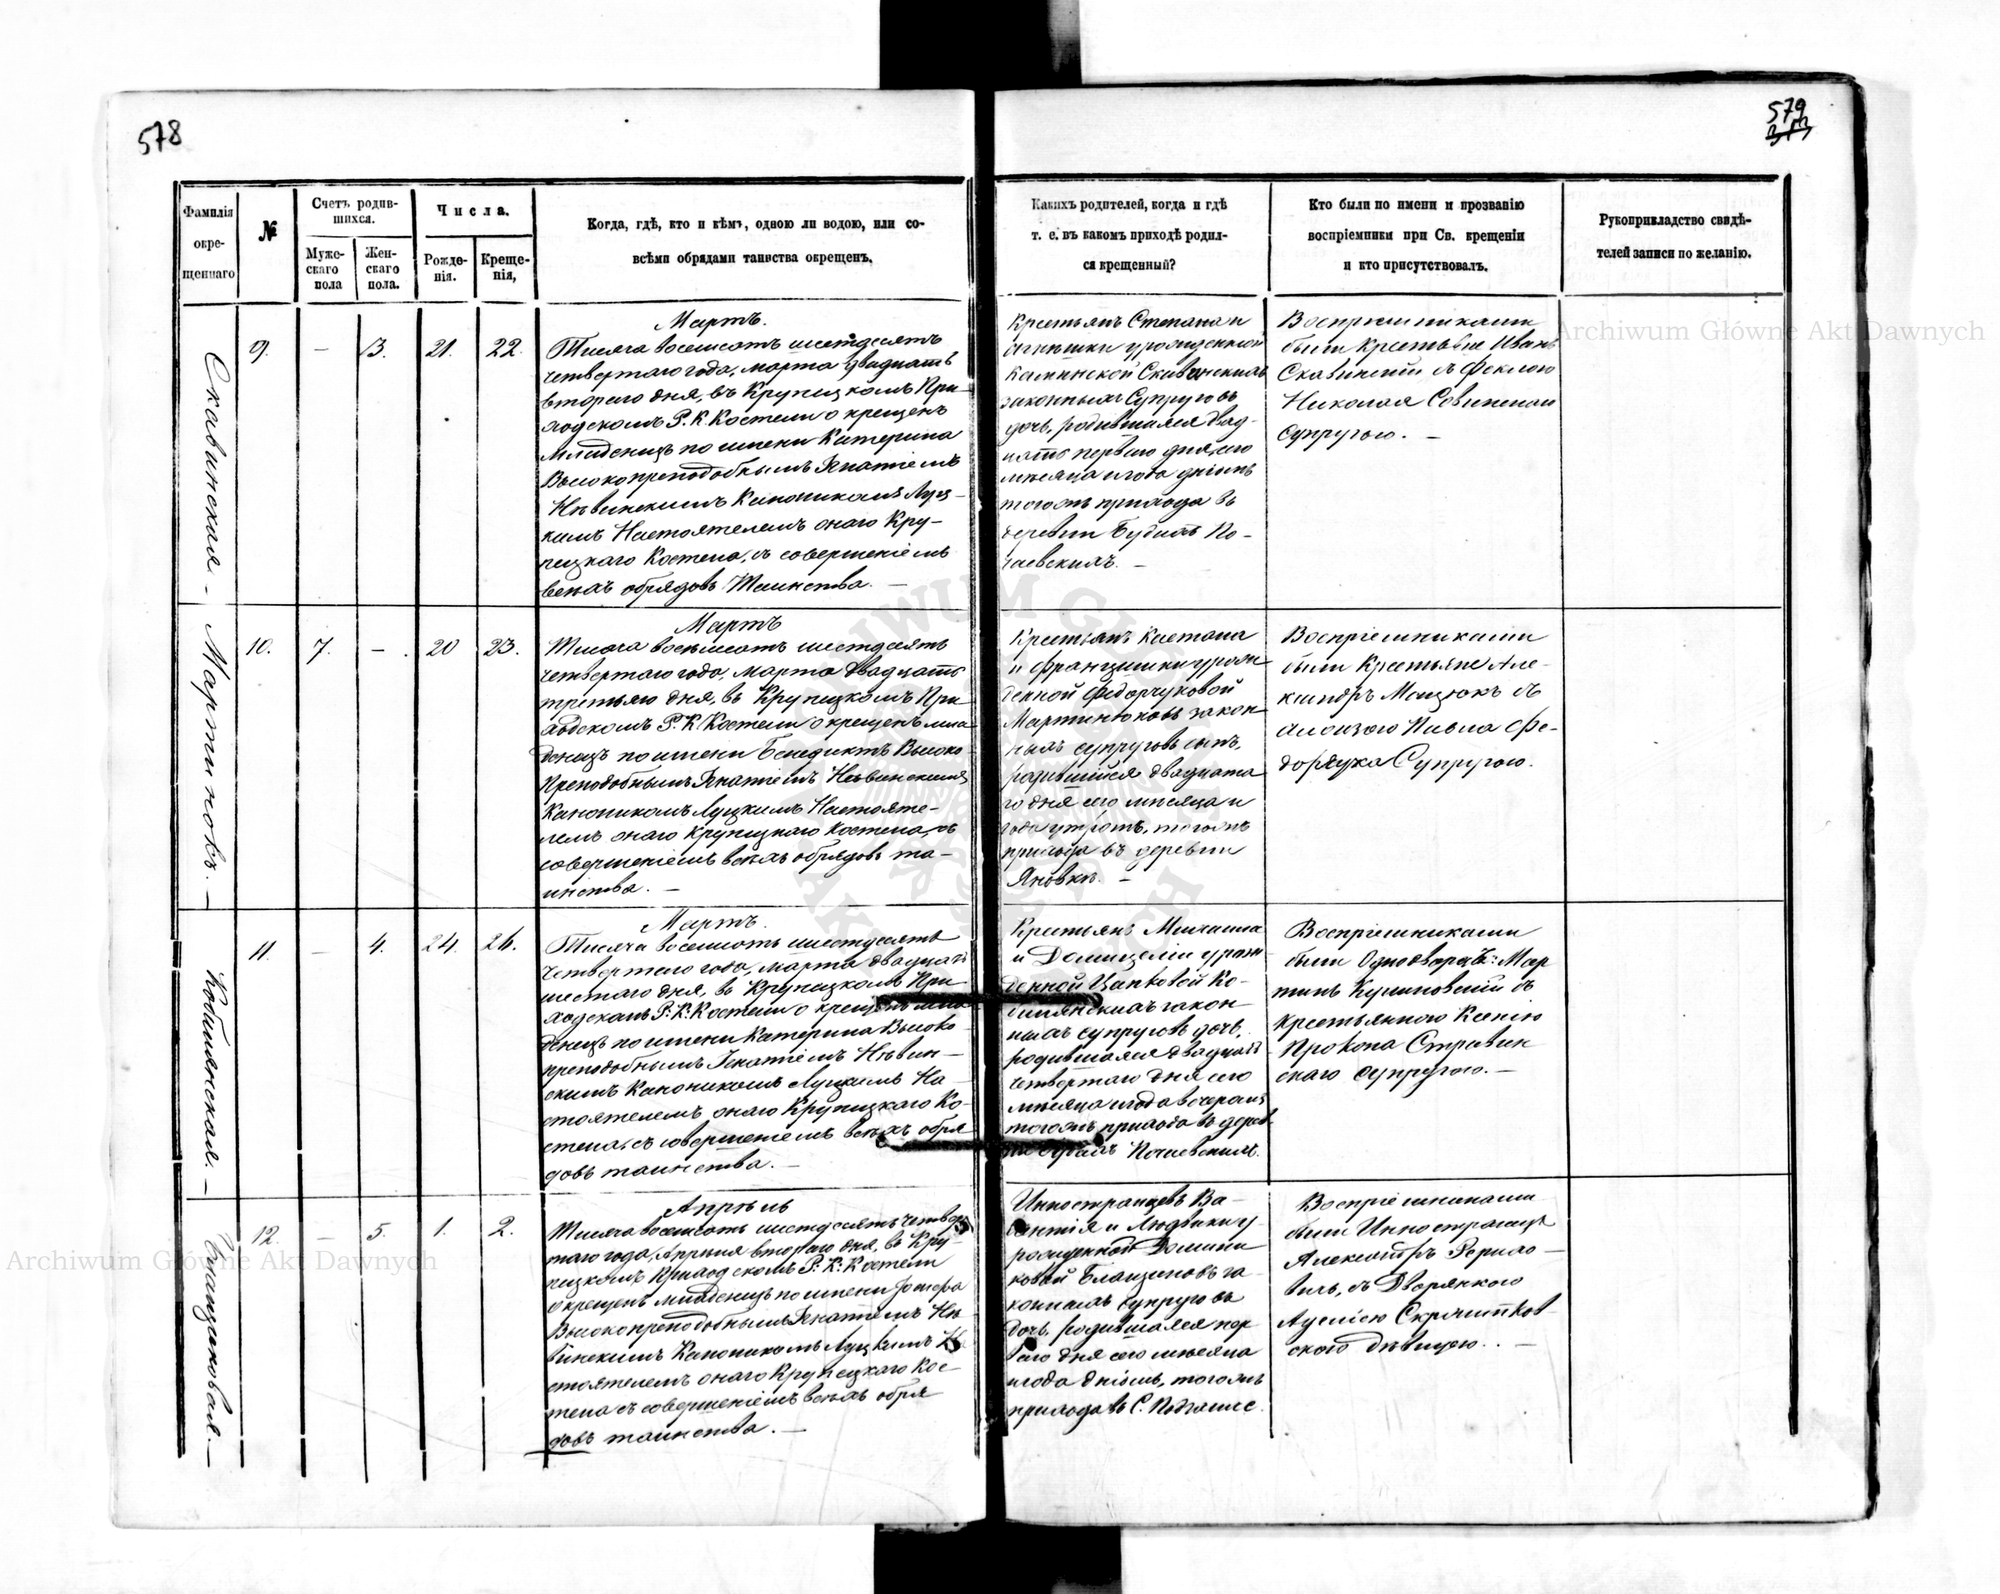 578
579
Фамилія
окре-
щеннаго
№
Счетъ родив-
шихся.
Муже-
скаго
пола
Жен-
скаго
пола.
Числа.
Рожде-
нія.
Креще-
нія,
Когда, гдѣ, кто и кѣмъ, одною ли водою, или со-
всѣми обрядами таинства окрещенъ.
Какихъ родителей, когда и гдѣ
т. е. въ какомъ приходѣ родил-
ся крещенный?
Кто были по имени и прозванію
воспріемники при Св. крещеніи
и кто присутствовалъ.
Рукоприкладство свидѣ-
телей записи по желанію.
Скавинская. -
9. - 3. 21. 22.
Мартъ.
Тысяча восемсотъ шестдесятъ
четвертаго года, марта двадцать
втораго дня, въ Крупецкомъ При-
ходскомъ Р. К. Костели окрещенъ
Младенецъ по имени Катерина
Высокопреподобнымъ Игнатіемъ
Нѣвинскимъ Каноникомъ Луц-
кимъ Настоятелемъ онаго Кру-
пецкаго Костела, съ совершеніемъ
всѣхъ обрядовъ Таинства. -
Крестьянъ Степана и
Агнѣшки урожденной
Каминской Скавинскихъ
законныхъ Супруговъ
дочь, родившаяся двад-
цать перваго дня, сего
мѣсяца и года днемъ
тогожъ прихода въ
деревни Будкахъ По-
чаевскихъ. -
Воспріемниками
были Крестьяне Иванъ
Скавинскій съ Феклою
Николая
Супругою. -
Мартинюкъ. -
10. 7. - . 20 23.
Мартъ
Тысяча восемсотъ шестдесятъ
четвертаго года, Марта двадцать
третьяго дня, въ Крупецкомъ При
ходскомъ Р. К. Костели окрещенъ мла
денецъ по имени Бенедиктъ Высоко-
Преподобнымъ Игнатіемъ Нѣвинскимъ
Каноникомъ Луцкимъ Настояте-
лемъ онаго Крупецкаго Костела, съ
совершеніемъ всѣхъ обрядовъ та-
инства. -
Крестьянъ Каетана
и Францишки урож
денной Федорчуковой
Мартинюковъ закон
ныхъ супруговъ сынъ,
родившійся двадцата
го дня сего мѣсяца и
года утромъ, тогожъ
прихода въ деревни
Яновкѣ. -
Воспріемниками
были Крестьяне Але-
ксандръ Мацюкъ съ
Павла Фе-
дорчука Супругою.
Кобылянская. -
11. - 4. 24. 26.
Мартъ.
Тысяча восемсотъ шестдесятъ
четвертаго года, марта двадцать
шестаго дня, въ Крупецкомъ При
ходскомъ Р. К. Костели окрещенъ мла
денецъ по имени Катерина Высоко-
преподобнымъ Игнатіемъ Нѣвин-
скимъ Каноникомъ Луцкимъ На-
стоятелемъ онаго Крупецкаго Ко-
стела, съ совершеніемъ всѣхъ обря
довъ таинства. -
Крестьянъ Михаила
и Домицеліи урож
денной Цапковой Ко-
былянскихъ закон-
ныхъ супруговъ дочь,
родившаяся двадцать
четвертаго дня сего
мѣсяца и года вечеромъ
тогожъ прихода въ дерев
Почаевскихъ.
Воспріемниками
были Однодворцы: Мар
тинъ Кулиновскій съ
Крестьянкою Ксенію
Прокопа Стравин
скаго супругою. -
Блащиковая. -
12. - 5. 1. 2.
Апрѣль
Тысяча восемсотъ шестдесятъ четвер
таго года, Апрѣля втораго дня, въ Кру-
пецкомъ Приходскомъ Р. К. Костели
окрещенъ младенецъ по имени Юзефа
Высокопреподобнымъ Игнатіемъ Нѣ
винскимъ Каноникомъ Луцкимъ На
стоятелемъ онаго Крупецкаго Кос
тела съ совершеніемъ всѣхъ обря
довъ таинства. -
Иностранцевъ Ва-
и Людвики у-
рожденной Домини
ковой Блащиковъ за-
конныхъ супруговъ
дочь, родившаяся пер
ваго дня сего мѣсяца
и года днемъ, тогожъ
прихода въ С.
Воспріемниками
были Иностранецъ
Александръ
съ Дворянкою
дѣвицею. . -
Archiwum Główne Akt Dawnych
Archiwum Główne Akt Dawnych